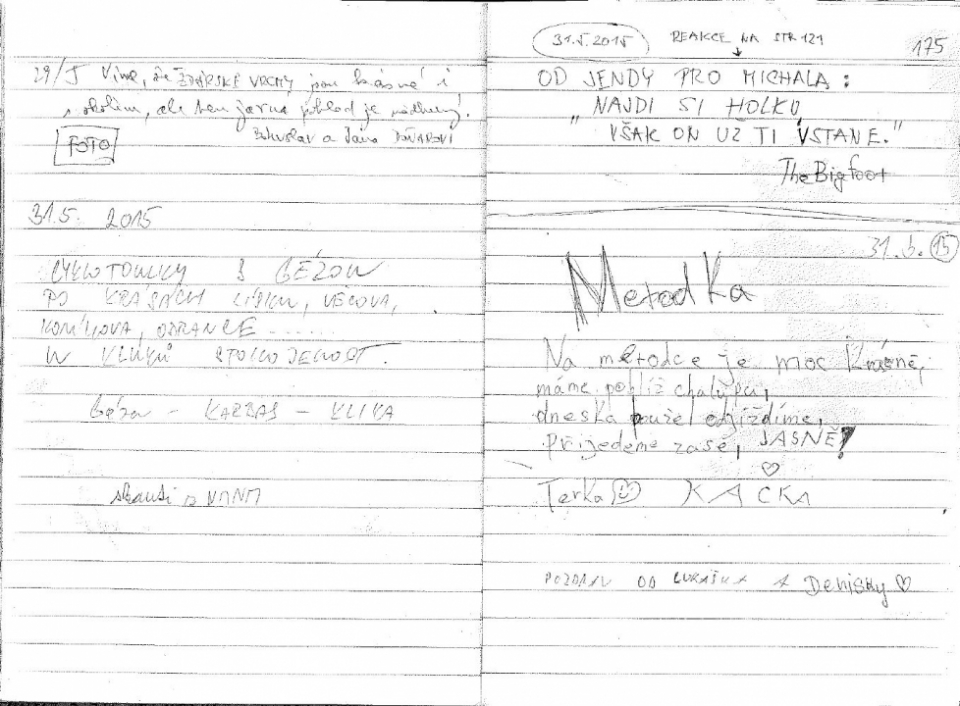 29/5 Víme, že ŽĎÁRSKÉ VRCHY jsou krásné i
s okolím, ale ten pohled je nádherný!
Bohuslav a Jana
FOTO
31.5. 2015
CYKLOTOULKY S BÉŽOU
PO KRÁSÁCH LÍSKU, VĚCOVA,
KONÍKOVA, ODRANCE ......
W KLUKŮ
Béža - KARBAS - KLIKA
31.5.2015 REAKCE NA STR 121
175
OD JENDY PRO MICHALA:
"NAJDI SI HOLKU
VŠAK ON UŽ TI VSTANE."
TheBigfoot
31.5. 15
Metodka
Na metodce je moc krásně,
máme poblíž chalupu,
dneska odjíždíme,
přijedeme zase, JASNĚ!
Terka KAČKA
POZDRAV OD LUKÁŠKA A Denisky